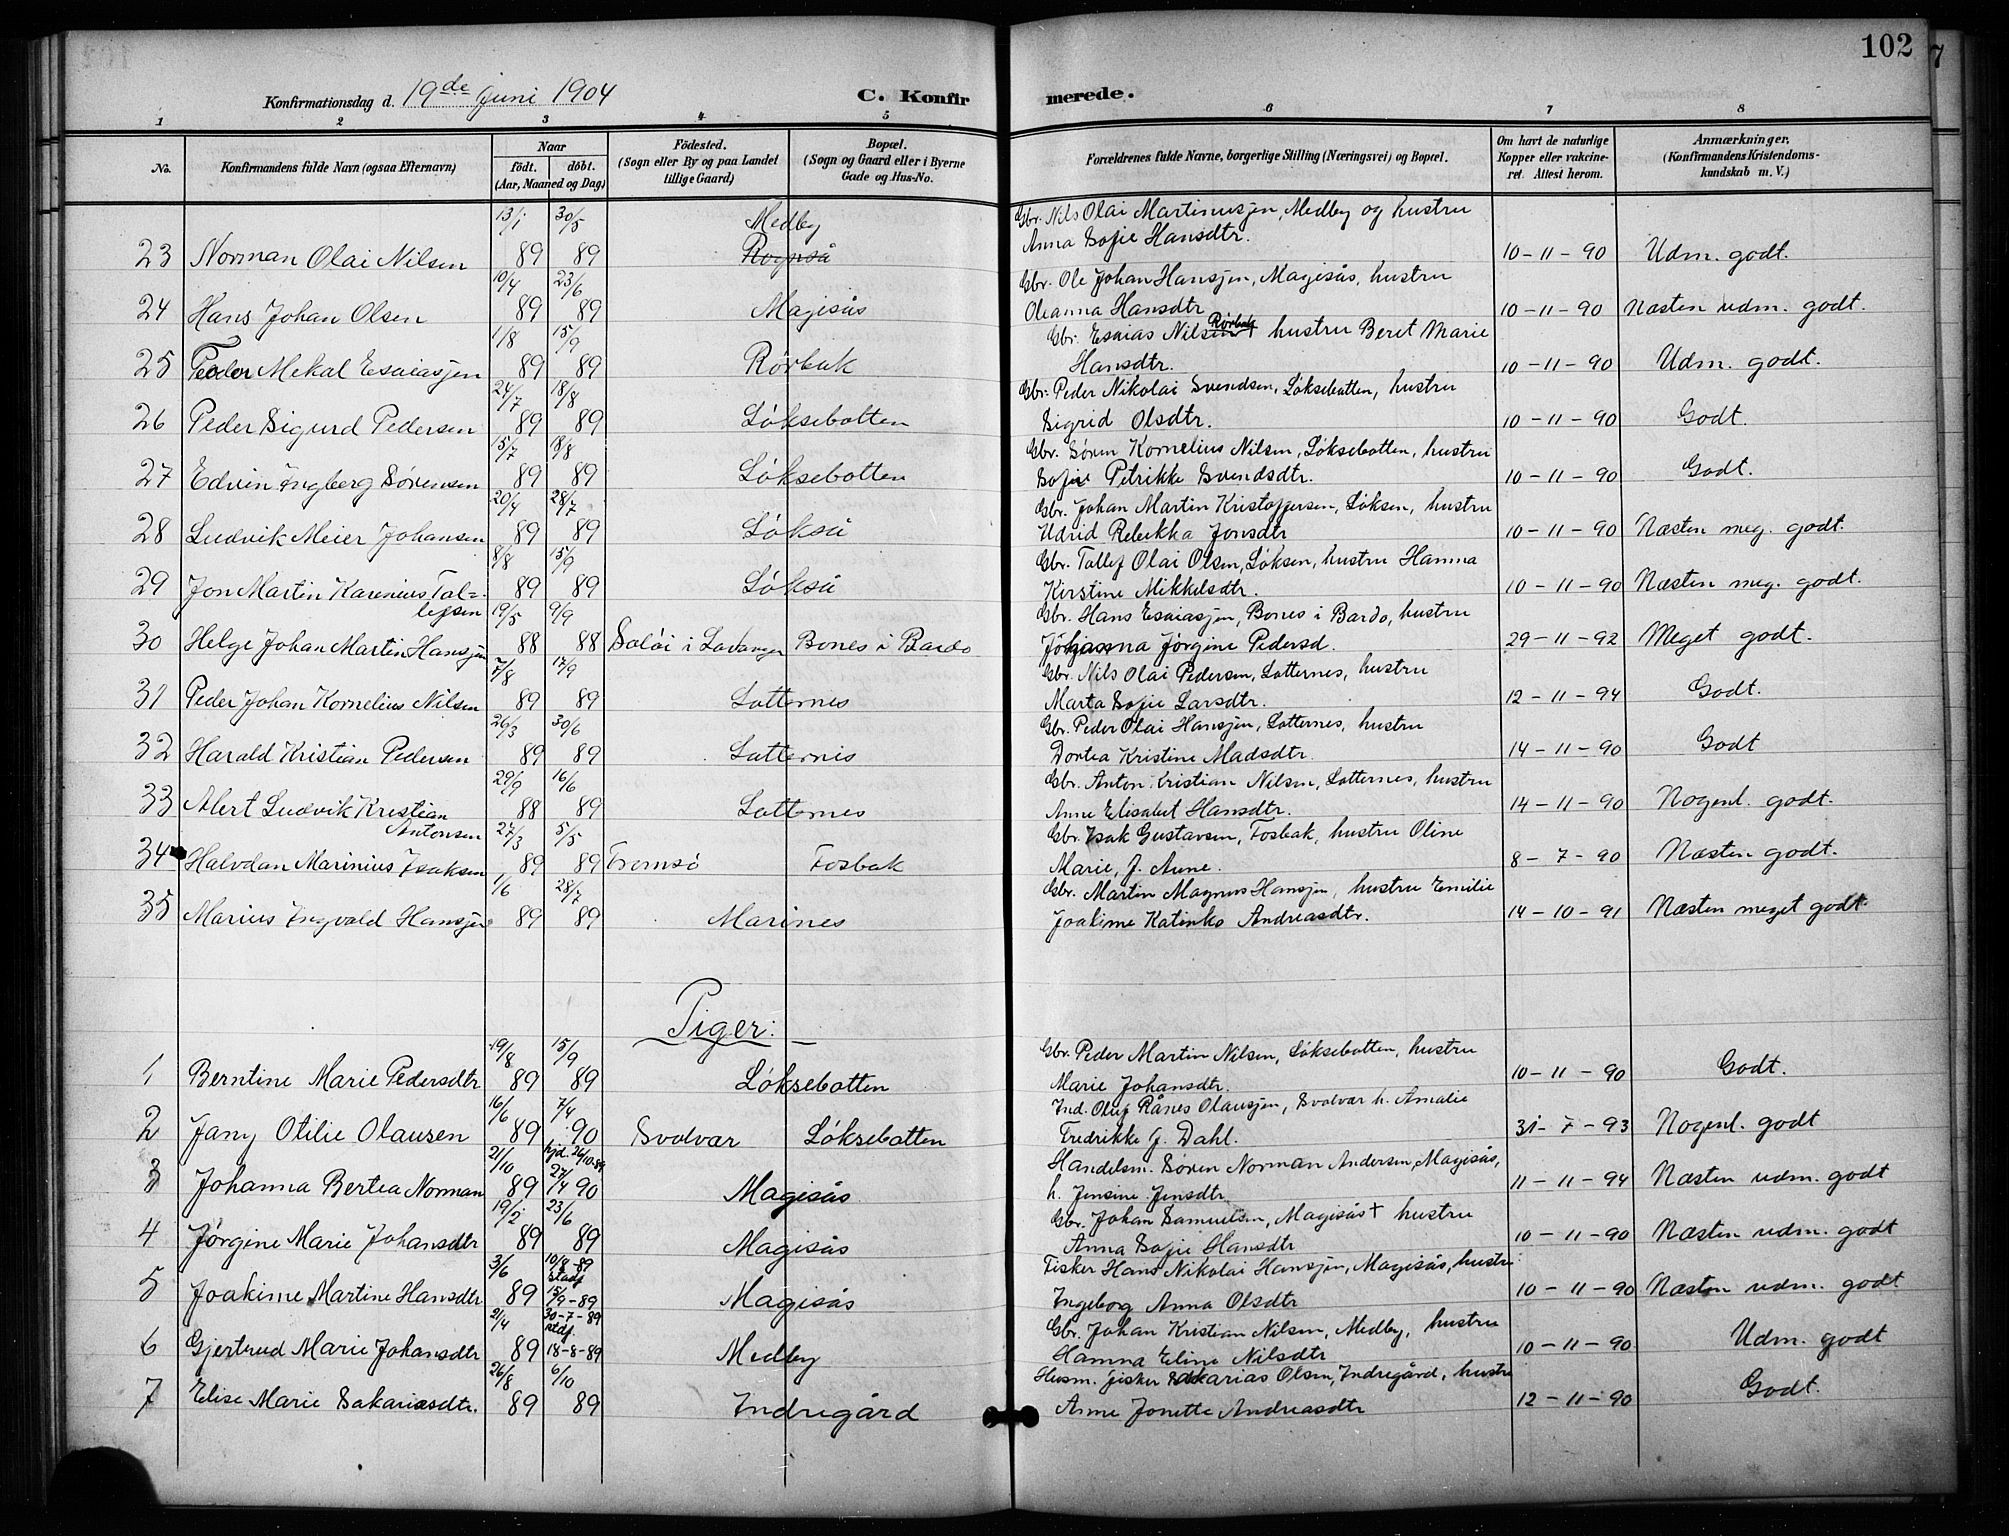 102
Konfirmationsdag d. 19de Juni 1904
C. Konfirmerede.
1 2 3 4 5 6 7 8
No.
Konfirmandens fulde Navn (ogsaa Efternavn)
Naar
født. døbt.
(Aar, Maaned og Dag)
Fødested.
(Sogn eller By og paa Landet
tillige Gaard)
Bopæl.
(Sogn og Gaard eller i Byerne
Gade og Hus-No.
Forældrenes fulde Navne, borgerlige Stilling (Næringsvei) og Bopæl.
Om havt de naturlige
Kopper eller vakcine-
ret. Attest herom.
Anmærkninger.
(Konfirmandens Kristendoms-
kundskab m. V.)
13/1 30/5 Medby Gbr. Nils Olai Martinusjen, Medby og hustru
23 Norman Olai Nilsen 89 89 Rognså Anna Sofie Hansdtr. 10-11-90 Udm. godt.
10/4 23/6 Gbr. Ole Johan Hansjen, Magisås, hustru
24 Hans Johan Olsen 89 89 Magisås Oleanna Hansdtr 10-11-90 Næsten udm. godt.
1/8 15/9 Gbr. Esaias Nilsen Rørbak hustru Beret Marie
25 Peder Mekal Esaiasjen 89 89 Rørbak Hansdtr. 10-11-90 Udm. godt.
24/7 18/8 Gbr. Peder Nikolai Svendsen, Løksebotten, hustru
26 Peder Sigurd Pedersen 89 89 Løksebotten Sigrid Olsdtr. 10-11-90 Godt.
15/7 8/8 Gbr. Søren Kornelius Nilsen, Løksebotten, hustru
27 Edvin Ingberg Sørensen 89 89 Løksebotten Sofie Petrikke Svendsdtr. 10-11-90 Godt.
20/4 28/7 Gbr. Johan Martin Kristoffersen, Løksen, hustru
28 Ludvik Meier Johansen 89 89 Løkså Udrid Rebekka Jonsdtr 10-11-90 Næsten meg. godt.
8/8 15/9 Gbr. Tollef Olai Olsen, Løksen, hustru Hanna
29 Jon Martin Karenius Tol= 89 89 Løkså Kirstine Mikkelsdtr. 10-11-90 Næsten meg. godt.
lefsen 19/5 9/9 Gbr. Hans Esaiasjen, Bones i Bardo, hustru
30 Helge Johan Martin Hansjen 88 88 Soløi i Lavangen Bones i Bardo Johanna Jørgine Pedersd. 29-11-92 Meget godt.
7/8 17/9 Gbr. Nils Olai Pedersen, Lotternes, hustru
31 Peder Johan Kornelius Nilsen 89 89 Lotternes Marta Sofie Larsdtr. 12-11-94 Godt.
26/3 30/6 Gbr. Peder Olai Hansjen, Lotternes, hustru
32 Harald Kristian Pedersen 89 89 Lotternes Dortea Kristine Madsdtr. 14-11-90 Godt
29/9 16/6 Gbr. Anton Kristian Nilsen, Lotternes, hustru
33 Albert Ludvik Kristian 88 89 Lotternes Anne Elisabet Hansdtr. 14-11-90 Nogenl. godt.
Antonsen 27/3 5/5 Gbr. Isak Gustavsen, Fosbak, hustru Oline
34 Halvdan Marinius Isaksen 89 89 Tromsø Fosbak Marie, J. Aune. 8-7-90 Næsten godt.
1/6 28/7 Gbr. Martin Magnus Hansjen, hustru Emilie
35 Marius Ingvald Hansjen 89 89 Marines Joakime Katinka Andreasdtr. 14-10-91 Næsten meget godt.
Piger:
19/8 15/9 Gbr. Peder Martin Nilsen, Løksebotten, hustru
1 Berntine Marie Pedersdtr 89 89 Løksebotten Marie Johansdtr. 10-11-90 Godt.
16/6 7/4 Ind. Oluf Rånes Olausjen, Svolvar h. Amalie
2 Jany Otilie Olausen 89 90 Svolvar Løksebotten Fredrikke J. Dahl. 31-7-93 Nogenl. godt
21/10 hjd. 26/10-89 Handelsm. Søren Norman Andersen, Magisås,
3 Johanna Bertea Norman 89 27/4 90 Magisås h. Jensine Jensdtr 11-11-94 Næsten udm. godt
19/2 23/6 Gbr. Johan Samuelsen, Magisås † hustru
4 Jørgine Marie Johansdtr 89 89 Magisås Anna Sofie Hansdtr 10-11-90 Næsten udm. godt
3/6 10/8-89 stadf. Fisker Hans Nikolai Hansjen, Magisås, hustru
5 Joakime Martine Hansdtr 89 15/9-89 Magisås Ingeborg Anna Olsdtr 10-11-90 Næsten udm. godt
21/4 30-7-89 stdf. Gbr. Johan Kristian Nilsen, Medby, hustru
6 Gjertrud Marie Johansdtr 89 18-8-89 Medby Hanna Eline Nilsdtr 10-11-90 Udm. godt
26/8 6/10 Husm. fisker Sakarias Olsen, Indregård, hustru
7 Elise Marie Sakariasdtr. 89 89 Indregård Anne Jonette Andreasdtr 12-11-90 Godt.